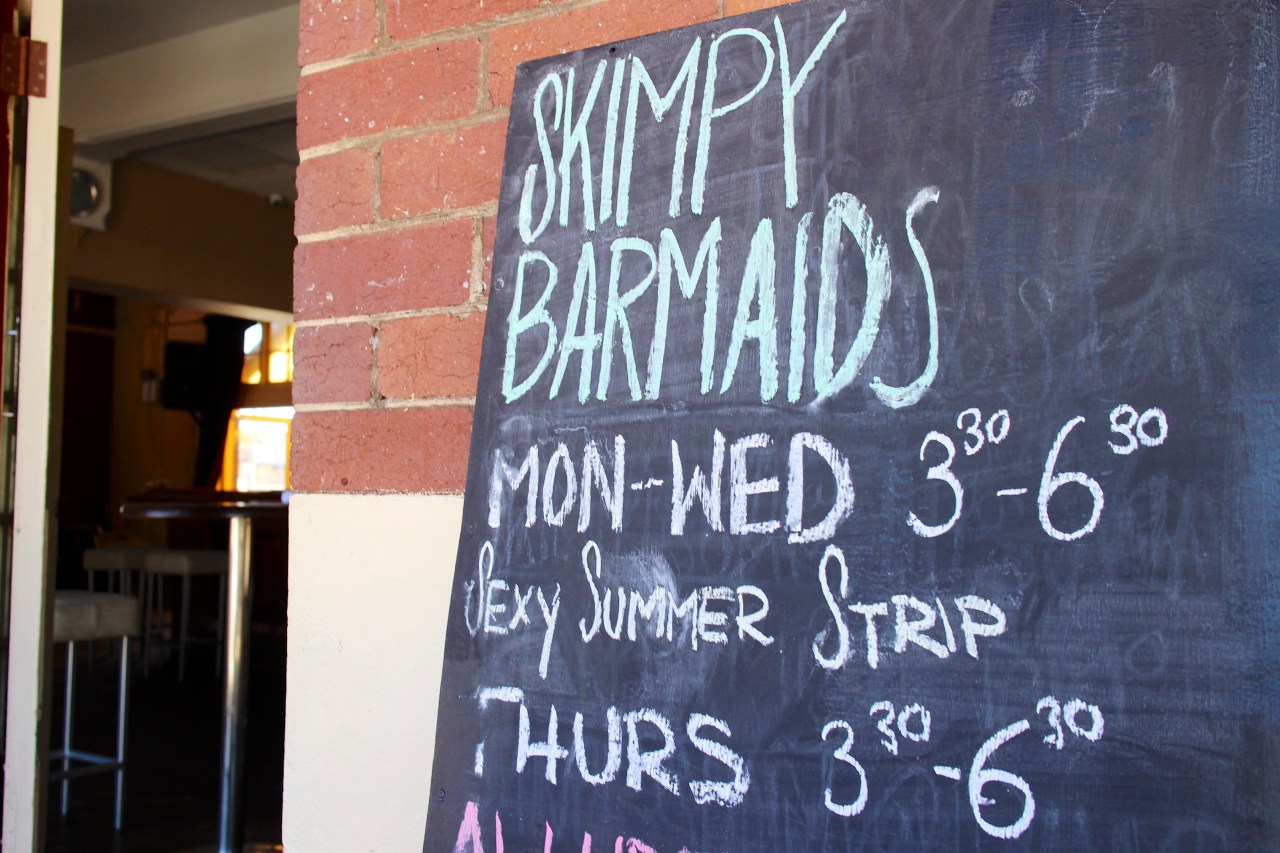 SKIMPY
BARMAIDS
MON--WED 3³⁰-6³⁰
SEXY SUMMER STRIP
THURS 3³⁰-6³⁰